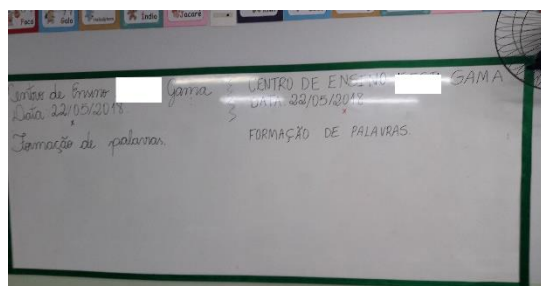 Faca
Galo
Índio
Jacaré
Centro de Ensino Gama
Data: 22/05/2018
Formação de palavras.
CENTRO DE ENSINO GAMA
DATA: 22/05/2018
FORMAÇÃO DE PALAVRAS.